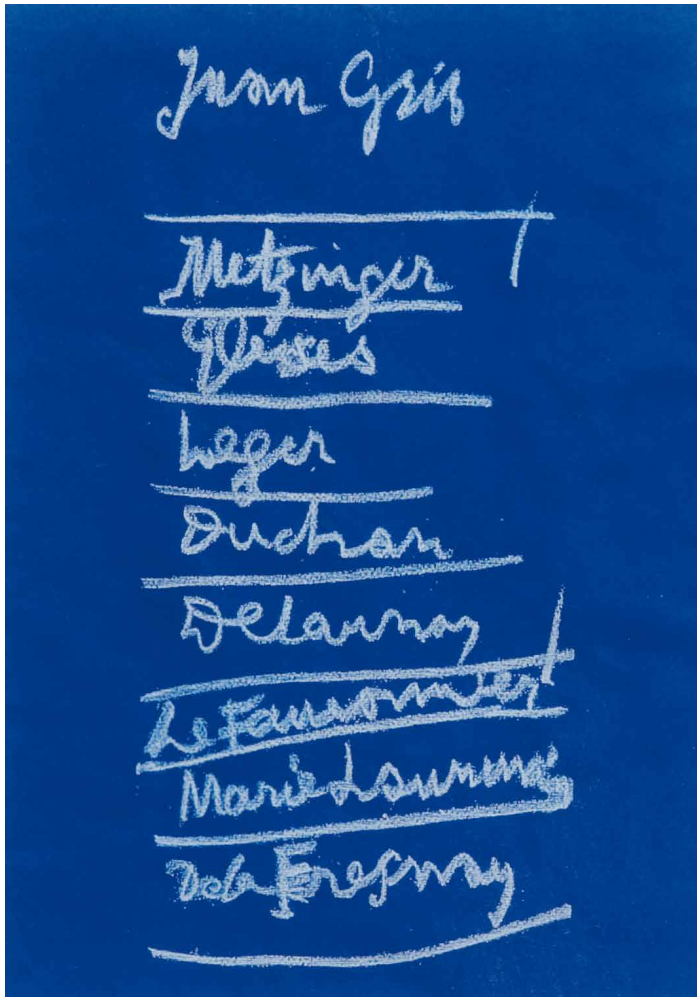 Juan Gris
Metzinger
Gleizes
Leger
Duchan
Delaunay
Le Fauconnier
Marie Laurencin
De la Fresnay